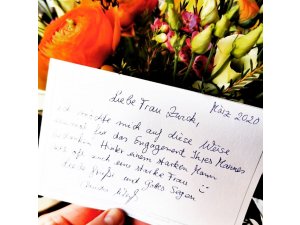 März 2020
Liebe Frau Zurek,
ich möchte mich auf diese Weise
einmal für das Engagement Ihres Mannes
bedanken. Hinter einem starken Mann
ist oft auch eine starke Frau
Liebe Grüße und Gottes Segen